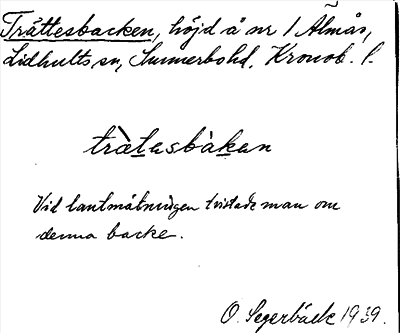 Trättesbacken, höjd å nr 1 Älmås,
Lidhults sn, Sunnerbo hd. Kronob. l.
trätasbàkan
Vid lantmätningen tvistade man om
denna backe.
O. Segerbäck 1939.